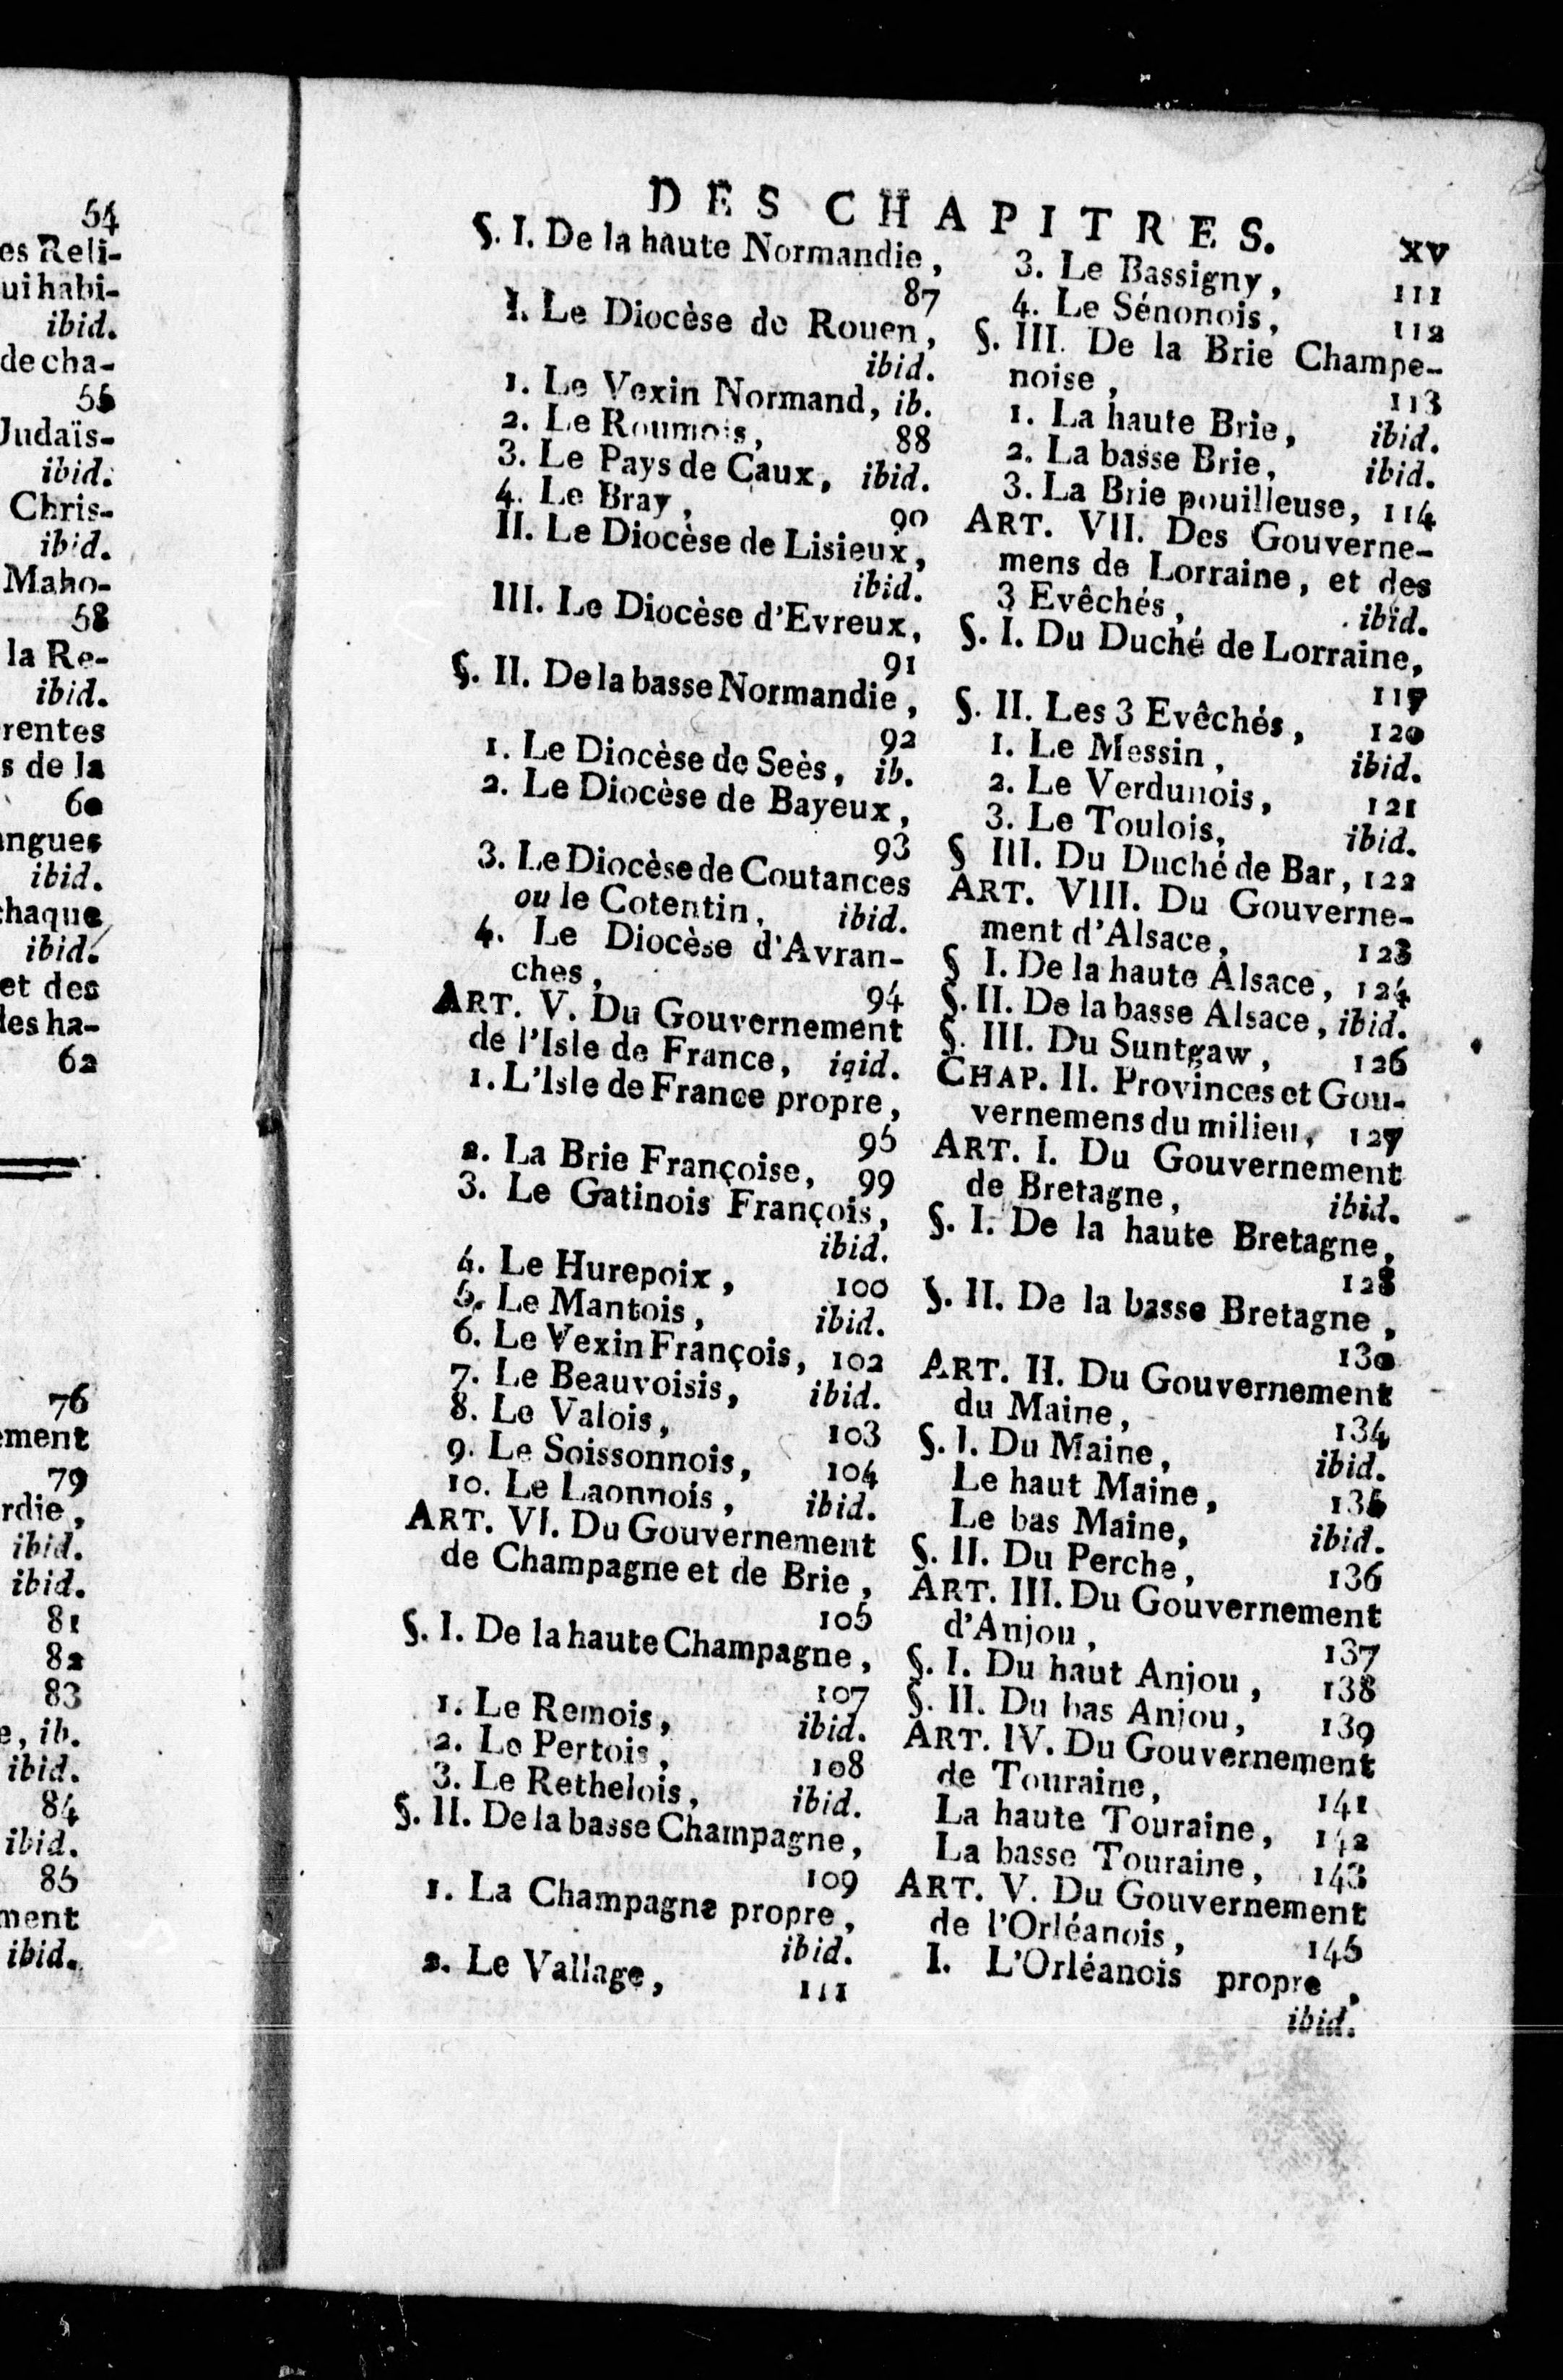 54
es Reli-
ui habi-
ibid.
de cha-
55
Judaïs-
ibid.
Chris-
ibid.
Maho-
58
la Re-
ibid.
rentes
s de la
60
angues
ibid.
chaque
ibid.
et des
les ha-
62
76
ement
79
rdie,
ibid.
ibid.
81
82
83
e, ib.
ibid.
84
ibid.
85
ment
ibid.
DES CHAPITRES. xv
§. I. De la haute Normandie,
87
I. Le Diocèse de Rouen,
ibid.
1. Le Vexin Normand, ib.
2. Le Roumois, 88
3. Le Pays de Caux, ibid.
4. Le Bray, 90
II. Le Diocèse de Lisieux,
ibid.
III. Le Diocèse d'Evreux,
91
§. II. De la basse Normandie,
92
1. Le Diocèse de Seès, ib.
2. Le Diocèse de Bayeux,
93
3. Le Diocèse de Coutances
ou le Cotentin, ibid.
4. Le Diocèse d'Avran-
ches, 94
ART. V. Du Gouvernement
de l'Isle de France, iqid.
1. L'Isle de France propre,
95
2. La Brie Françoise, 99
3. Le Gatinois François,
ibid.
4. Le Hurepoix, 100
5. Le Mantois, ibid.
6. Le Vexin François, 102
7. Le Beauvoisis, ibid.
8. Le Valois, 103
9. Le Soissonnois, 104
10. Le Laonnois, ibid.
ART. VI. Du Gouvernement
de Champagne et de Brie,
105
§. I. De la haute Champagne,
107
1. Le Remois, ibid.
2. Le Pertois, 108
3. Le Rethelois, ibid.
§. II. De la basse Champagne,
109
1. La Champagne propre,
ibid.
2. Le Vallage, 111
3. Le Bassigny, 111
4. Le Sénonois, 112
§. III. De la Brie Champe-
noise, 113
1. La haute Brie, ibid.
2. La basse Brie, ibid.
3. La Brie pouilleuse, 114
ART. VII. Des Gouverne-
mens de Lorraine, et des
3 Evêchés, ibid.
§. I. Du Duché de Lorraine,
117
§. II. Les 3 Evêchés, 120
1. Le Messin, ibid.
2. Le Verdunois, 121
3. Le Toulois, ibid.
§ III. Du Duché de Bar, 122
ART. VIII. Du Gouverne-
ment d'Alsace, 123
§ I. De la haute Alsace, 124
§. II. De la basse Alsace, ibid.
§. III. Du Suntgaw, 126
CHAP. II. Provinces et Gou-
vernemens du milieu, 127
ART. I. Du Gouvernement
de Bretagne, ibid.
§. I. De la haute Bretagne,
128
§. II. De la basse Bretagne,
130
ART. II. Du Gouvernement
du Maine, 134
§. I. Du Maine, ibid.
Le haut Maine, 135
Le bas Maine, ibid.
§. II. Du Perche, 136
ART. III. Du Gouvernement
d'Anjou, 137
§. I. Du haut Anjou, 138
§. II. Du bas Anjou, 139
ART. IV. Du Gouvernement
de Touraine, 141
La haute Touraine, 142
La basse Touraine, 143
ART. V. Du Gouvernement
de l'Orléanois, 145
I. L'Orléanois propre,
ibid.